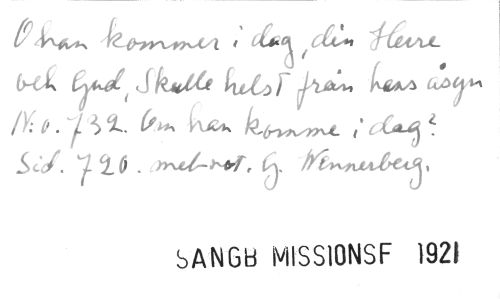 O han kommer i dag, din Herre
och Gud, Skulle helst från hans åsyn
N:o. 732. Om han komme i dag?
Sid. 720. mel-not. G. Wennerberg.
SANGB MISSIONSF 1921